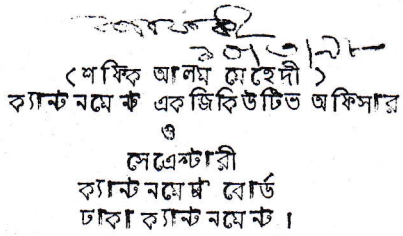 (শফিক আলম মেহেদী)
ক্যান্টনমেন্ট একজিকিউটিভ অফিসার
ও
সেক্রেটারী
ক্যান্টনমেন্ট বোর্ড
ঢাকা ক্যান্টনমেন্ট।